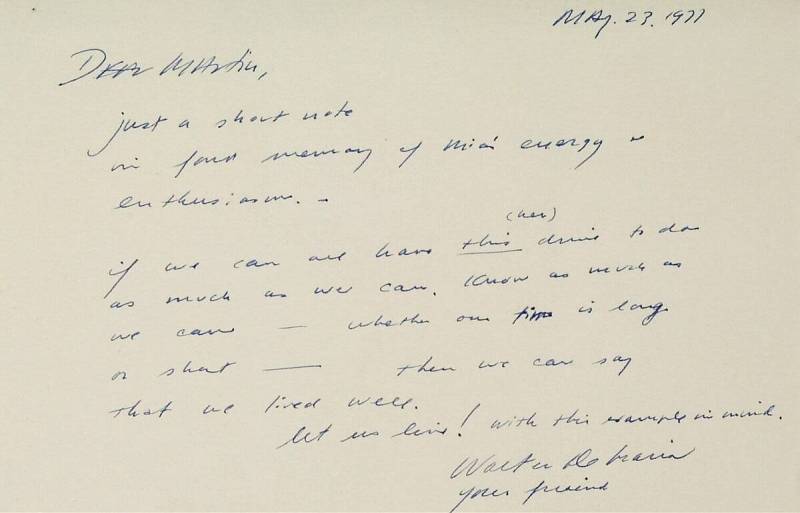 MAy. 23. 1977
Dear Martin,
just a short note
in fond memory of Mia's energy &
enthusiasm. –
(her)
if we can all have this drive to do
as much as we can. Know as much as
we can — whether our time is long
or short — then we can say
that we lived well.
let us live! with this example in mind.
Walter De Maria
your friend